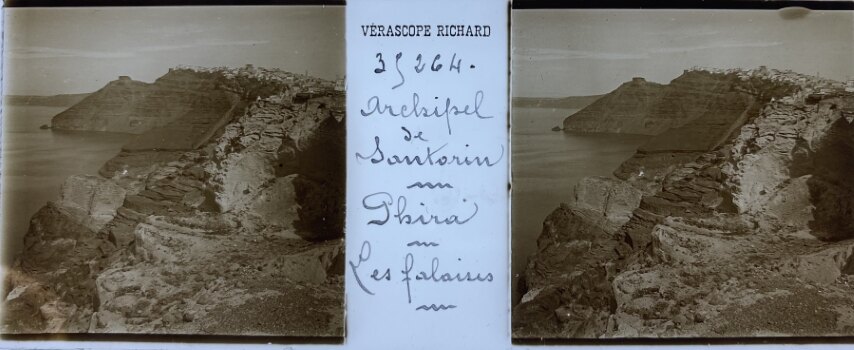 VÉRASCOPE RICHARD
35264.
Archipel
de
Santorin
Phira
Les falaises